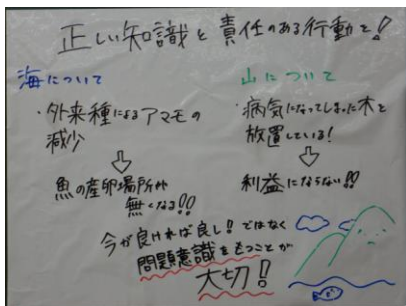 正しい知識と責任のある行動を!
海について
・外来種によるアマモの
減少
⇩
魚の産卵場所が
無くなる!!
山について
・病気になってしまった木を
放置している!
⇩
利益にならない!!
今が良ければ良し!ではなく
問題意識をもつことが
大切!